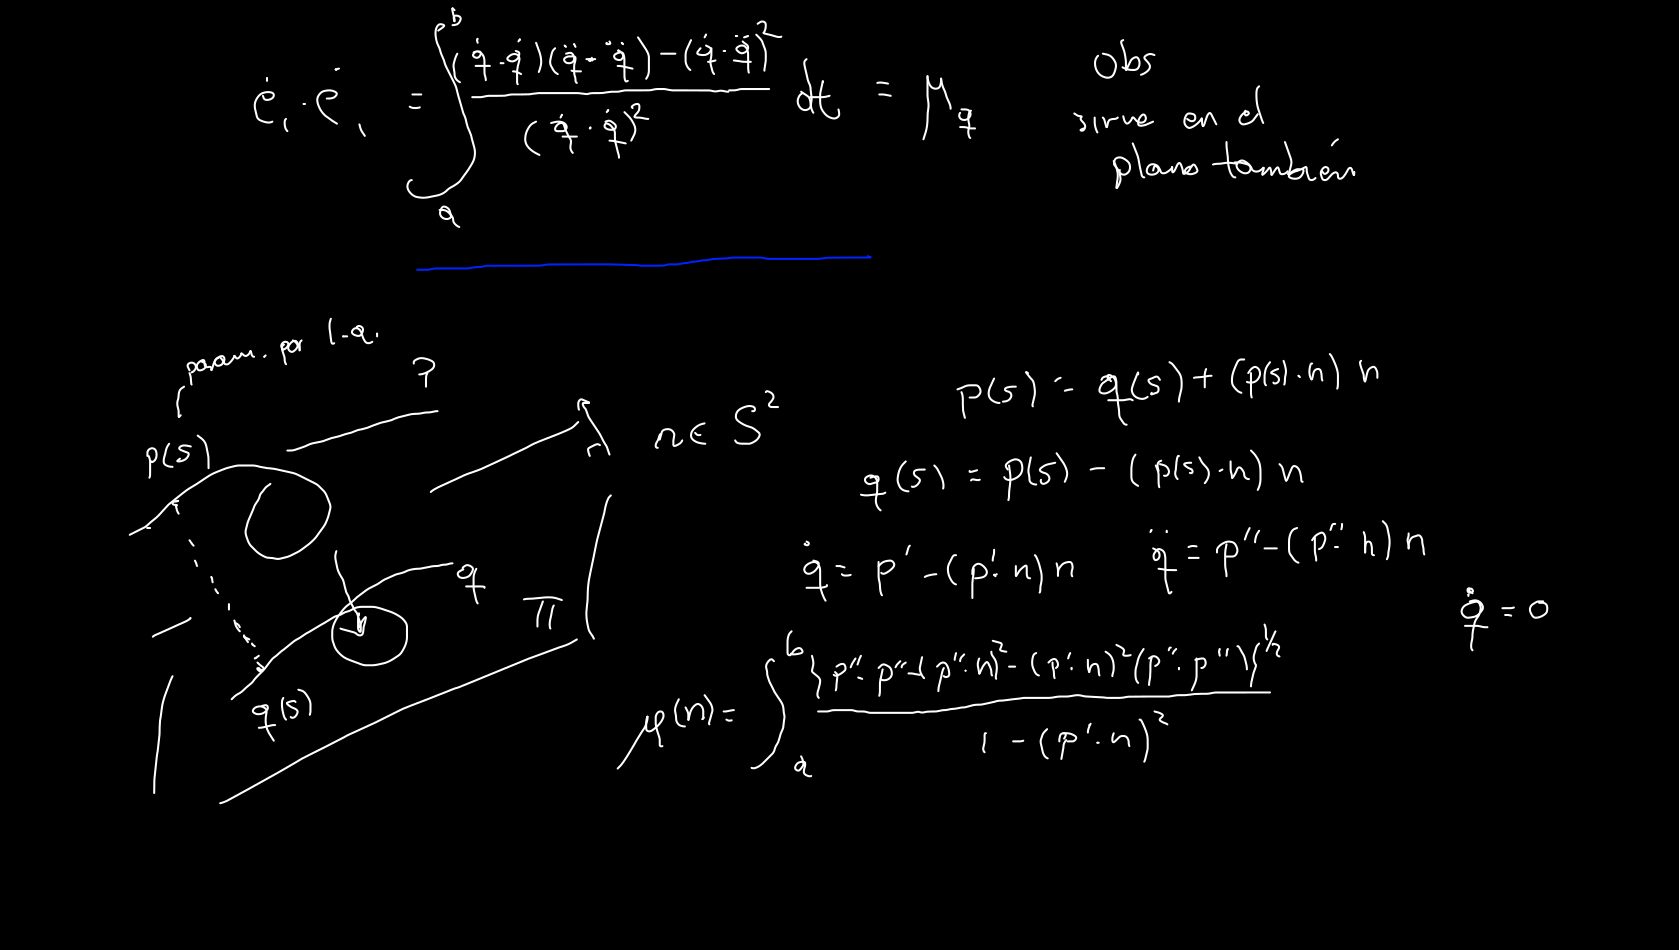 ė₁ · ė₁ = ∫ₐᵇ ((q̇ · q̇)(q̈ · q̈) − (q̇ · q̈)²) / (q̇ · q̇)² dt = μ_q
Obs
sirve en el
plano también
param. por l.a.
?
p(s)
n
n ∈ S²
q
Π
q(s)
p(s) = q(s) + (p(s) · n) n
q(s) = p(s) − (p(s) · n) n
q̇ = p′ − (p′ · n) n
q̈ = p″ − (p″ · n) n
q̇ = 0
μ(n) = ∫ₐᵇ {p″ · p″ − (p″ · n)² − (p′ · n)² (p″ · p″)}^½ / (1 − (p′ · n)²)